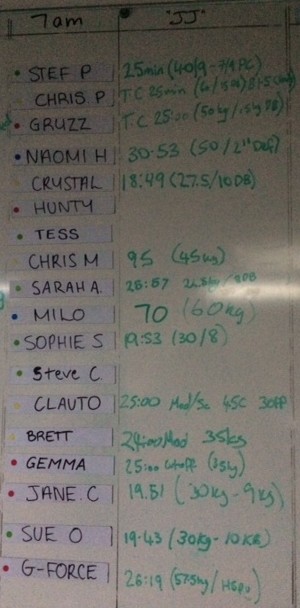 7am "JJ"
STEF P 25min (40/9 - 7/9 PC)
CHRIS P T.C 25min
GRUZZ T.C 25:00 (50kg
NAOMI H 30:53 (50/2"
CRYSTAL 18:49 (27.5/10DB)
HUNTY
TESS
CHRIS M 95 (45kg)
SARAH A. 26:57
MILO 70 (60kg)
SOPHIE S 19:53 (30/8)
Steve C.
CLAUTO 25:00 Mod/Sc 45C
BRETT Mod 35kg
GEMMA 25:00 cutoff (35kg)
JANE.C 19.51 (30kg - 9kg)
SUE O 19.43 (30kg - 10KB)
G-FORCE 26:19 (57.5kg/HSPU)